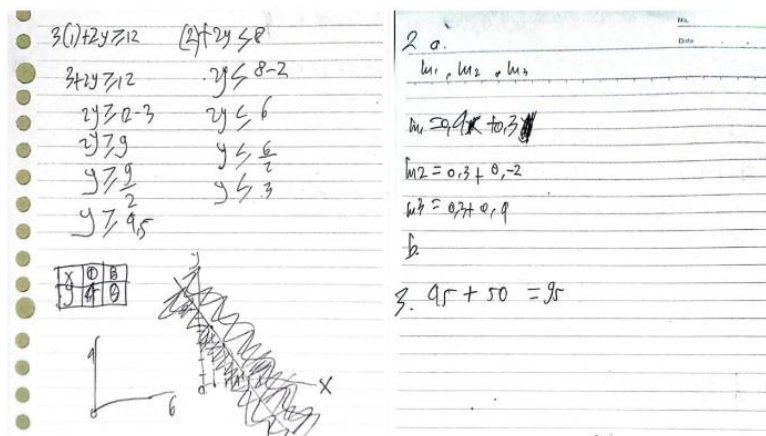 3(1)+2y≥12
3+2y≥12
2y≥12-3
2y≥9
y≥9/2
y≥4,5
(2)+2y≤8
2y≤8-2
2y≤6
y≤6/2
y≤3
x 0 8
y 4 0
y
x
0
4
0 6
No.
Date
2 a.
m1, m2, m3
m2=0,3+0,-2
m3=0,3+0,9
b.
3. 45+50=95